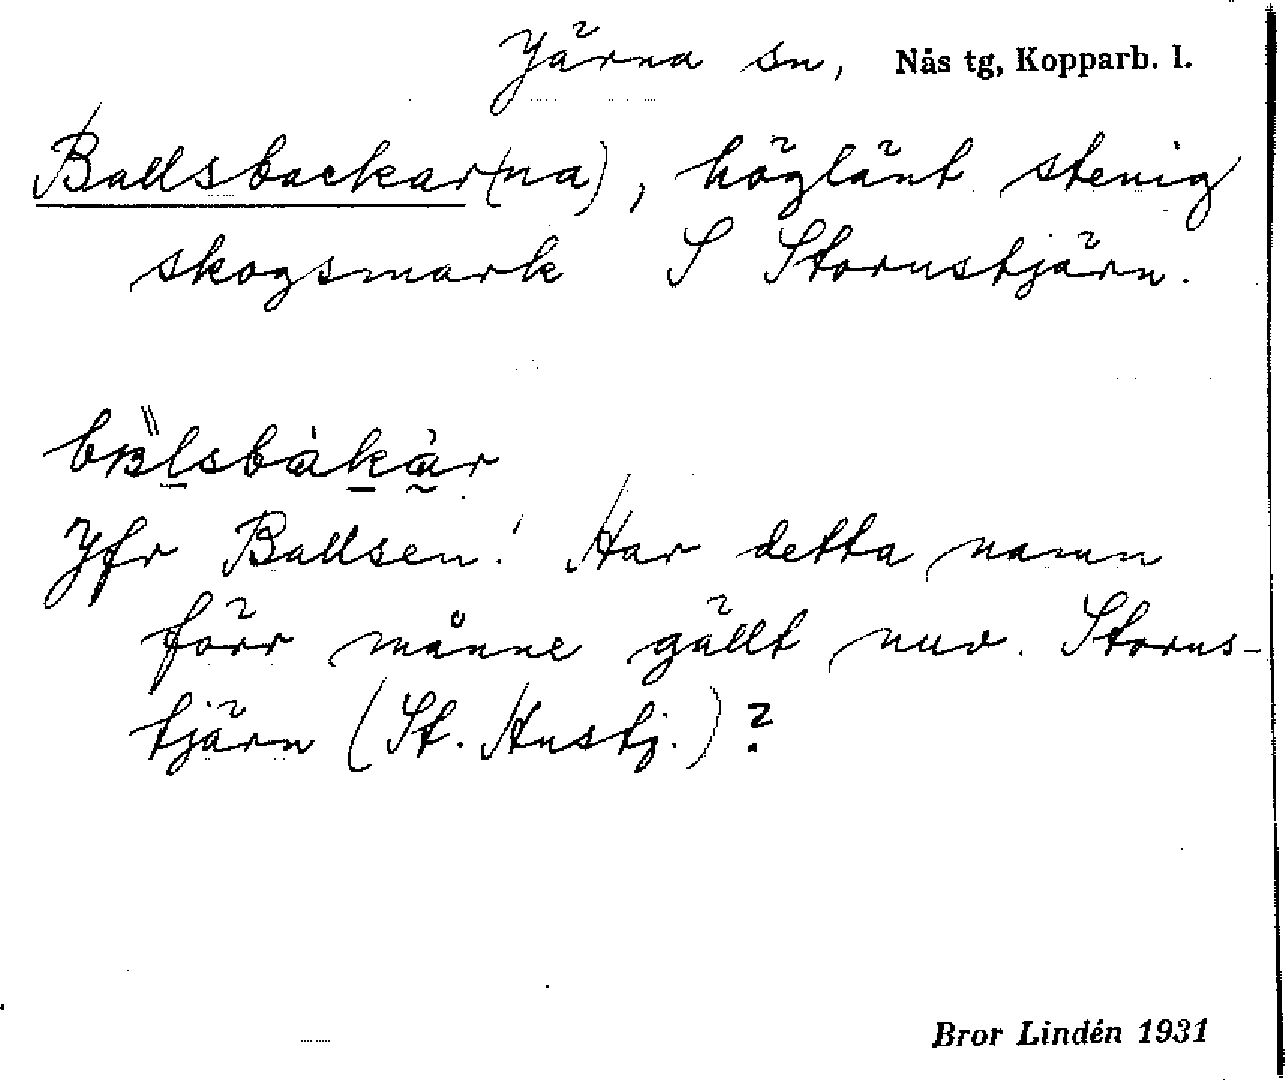 Järna sn, Nås tg, Kopparb. l.
Ballsbackar(na), höglänt stenig
skogsmark S Stornstjärn.
Jfr Ballsen! Har detta namn
förr månne gällt nuv. Storns-
tjärn (St. Hustj.)?
Bror Lindén 1931